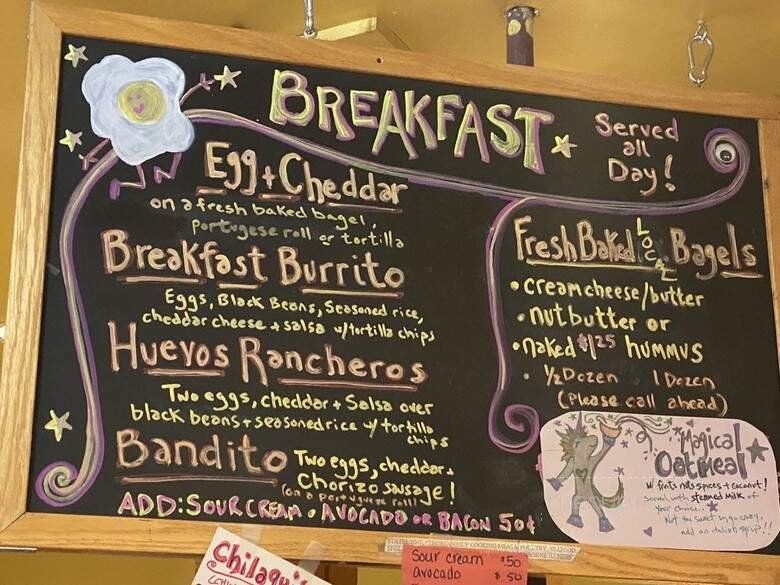 BREAKFAST
Served
all
Day!
Egg + Cheddar
on a fresh baked bagel,
Portugese roll or tortilla
Breakfast Burrito
Eggs, Black Beans, Seasoned rice,
cheddar cheese + salsa w/tortilla chips
Huevos Rancheros
Two eggs, cheddar + Salsa over
black beans + seasoned rice w/ tortilla
chips
Bandito Two eggs, cheddar +
Chorizo sausage!
(on a Portuguese roll)
ADD: SOUR CREAM • AVOCADO OR BACON 50¢
Fresh Baked LOCAL Bagels
• cream cheese/butter
• nutbutter or
• naked $1.25 hummus
• 1/2 Dozen 1 Dozen
(Please call ahead)
Magical
Oatmeal
w/ fruits nuts spices + coconut!
Served with steamed milk of
your choice.
Not too sweet
add an italian syrup!!
Sour cream .50
avocado .50